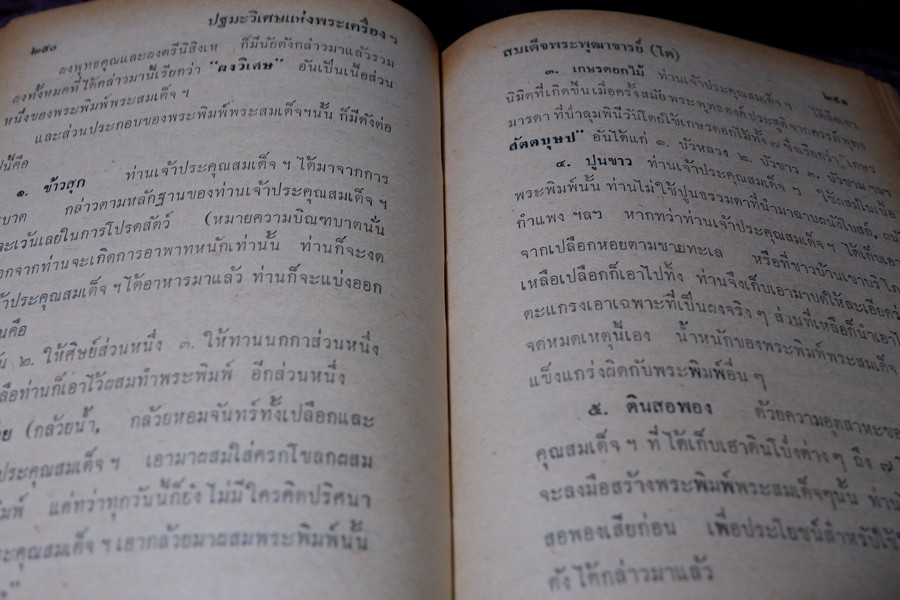 ๒๙๐
ปฐมะวิเศษแห่งพระเครื่อง ๆ
ผงพุทธคุณและผงตรีนิสิงเห ก็มีนัยดังกล่าวมาแล้วรวม
ผงทั้งหมดที่ได้กล่าวมานี้เรียกว่า "ผงวิเศษ" อันเป็นเนื้อส่วน
หนึ่งของพระพิมพ์พระสมเด็จ ฯ
และส่วนประกอบของพระพิมพ์พระสมเด็จฯนั้น ก็มีดังต่อ
นี้คือ
๑. ข้าวสุก ท่านเจ้าประคุณสมเด็จ ฯ ได้มาจากการ
บาต กล่าวตามหลักฐานของท่านเจ้าประคุณสมเด็จ ฯ
ละเว้นเลยในการโปรดสัตว์ (หมายความบิณฑบาตนั่น
อกจากท่านจะเกิดการอาพาทหนักเท่านั้น ท่านก็จะงด
จ้าประคุณสมเด็จ ฯ ได้อาหารมาแล้ว ท่านก็จะแบ่งออก
นคือ
๒. ให้ศิษย์ส่วนหนึ่ง ๓. ให้ทานนกกาส่วนหนึ่ง
ลือท่านก็เอาไว้ผสมทำพระพิมพ์ อีกส่วนหนึ่ง
(กล้วยน้ำ, กล้วยหอมจันทร์ทั้งเปลือกและ
ประคุณสมเด็จ ฯ เอามาผสมใส่ครกโขลกผสม
มพ์ แต่ทว่าทุกวันนี้ก็ยังไม่มีใครคิดปริศนา
ะคุณสมเด็จ ฯ เอากล้วยมาผสมพระพิมพ์นั้น
สมเด็จพระพุฒาจารย์ (โต)
๒๙๑
๓. เกษรดอกไม้ ท่านเจ้าประคุณสมเด็จ ฯ
นิมิตที่เกิดขึ้นเมื่อครั้งสมัยพระพุทธองค์ประสูติจาก
มารดา ที่ป่าลุมพินีวันโดยใช้เกษรดอกไม้ทั้ง ๗ ซึ่งเรียกว่า "เกษร
สัตตบุษป" อันได้แก่ ๑. บัวหลวง ๒. บัวขาว ๓.
๔. ปูนขาว ท่านเจ้าประคุณสมเด็จ ฯ ใช้ผสมในเนื้อ
พระพิมพ์นั้น ท่านไม่ใช้ปูนธรรมดาที่นำมาฉาบผนังโบสถ์,
กำแพง ฯลฯ หากทว่าท่านเจ้าประคุณสมเด็จ ฯ ได้เก็บเอา
จากเปลือกหอยตามชายทะเล หรือที่ชาวบ้านเขาบริโภ
เหลือเปลือกก็เอาไปทิ้ง ท่านจึงเก็บเอามาบดให้ละเอียด
ตะแกรงเอาเฉพาะที่เป็นผงจริง ๆ ส่วนที่เหลือก็นำเอาไ
จดหมดเหตุนี้เอง น้ำหนักของพระพิมพ์พระสมเด็จ
แข็งแกร่งผิดกับพระพิมพ์อื่น ๆ
๕. ดินสอพอง ด้วยความอุตสาหะขอ
คุณสมเด็จ ฯ ที่ได้เก็บเอาดินโป่งต่าง ๆ ถึง ๗
จะลงมือสร้างพระพิมพ์พระสมเด็จๆนั้น ท่าน
สอพองเสียก่อน เพื่อประโยชน์สำหรับใช้
ดังได้กล่าวมาแล้ว